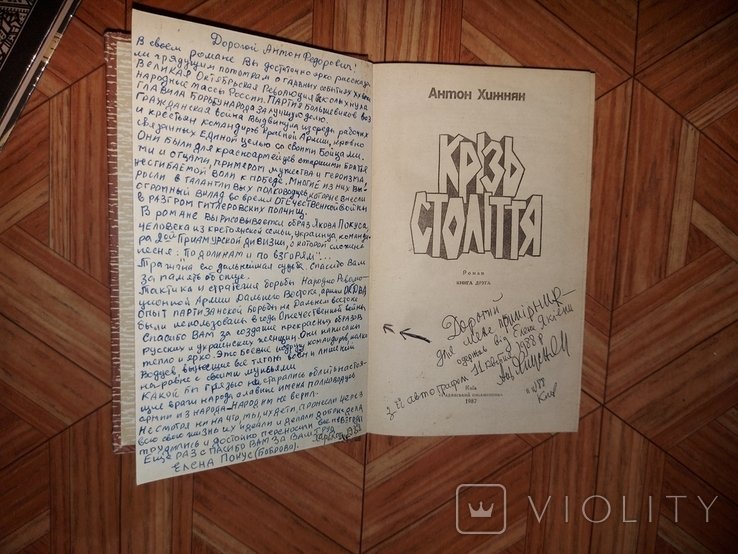 Дорогой Антон Федорович!
В своем романе Вы достаточно ярко рассказа-
ли грядущим потомкам о гла
Великая Октябрьская Революция всколыхнула
народные массы России. Партия Большевиков воз
главила борьбу народа за лучшую долю.
Гражданская война выдвинула из среды рабочих
и крестьян командиров Красной Армии, кровно
связанных единой целью со своими бойцами.
Они были для красноармейцев старшими братья
ми и отцами, примером мужества и героизма
несгибаемой воли к победе. Многие из них вы-
росли в талантливых полководцев, которые внесли
огромный вклад во время Отечественной войны
в разгром гитлеровских полчищ.
В романе вырисовывается образ Якова Покуса,
человека из крестьянской семьи, украинца, команди-
ра Приамурской дивизии, о которой сложена
песня: "По долинам и по взгорям"...
Трагична его дальнейшая судьба. Спасибо Вам
за память об отце.
Тактика и стратегия борьбы Народно Револю-
ционной Армии Дальнего Востока, армии ОКДВА
опыт партизанской борьбы на Дальнем Востоке
были использованы в годы Отечественной войны
Спасибо Вам за создание прекрасных образов
русских и украинских женщин. Они написаны
тепло и ярко. Это боевые подруги командиров,
вынесшие все тяготы войн и лишений
наравне с своими мужьями.
Какой бы грязью не старались облить настоя-
щие враги народа славные имена полководцев
армии из народа - народ им не верил.
Несмотря ни на что, мы, дети пронесли через
всю свою жизнь их идеалы и делали добрые дела
трудились и достойно переносили все невзгоды
Еще раз спасибо Вам за Ваш труд.
Елена Покус (Боброва).
Антон Хижняк
КРІЗЬ
СТОЛІТТЯ
Роман
КНИГА ДРУГА
Дорогий
Цей примірник
одержав від Олени Яківни
з її автографом 11 1988 р
Київ
1987
VIOLITY